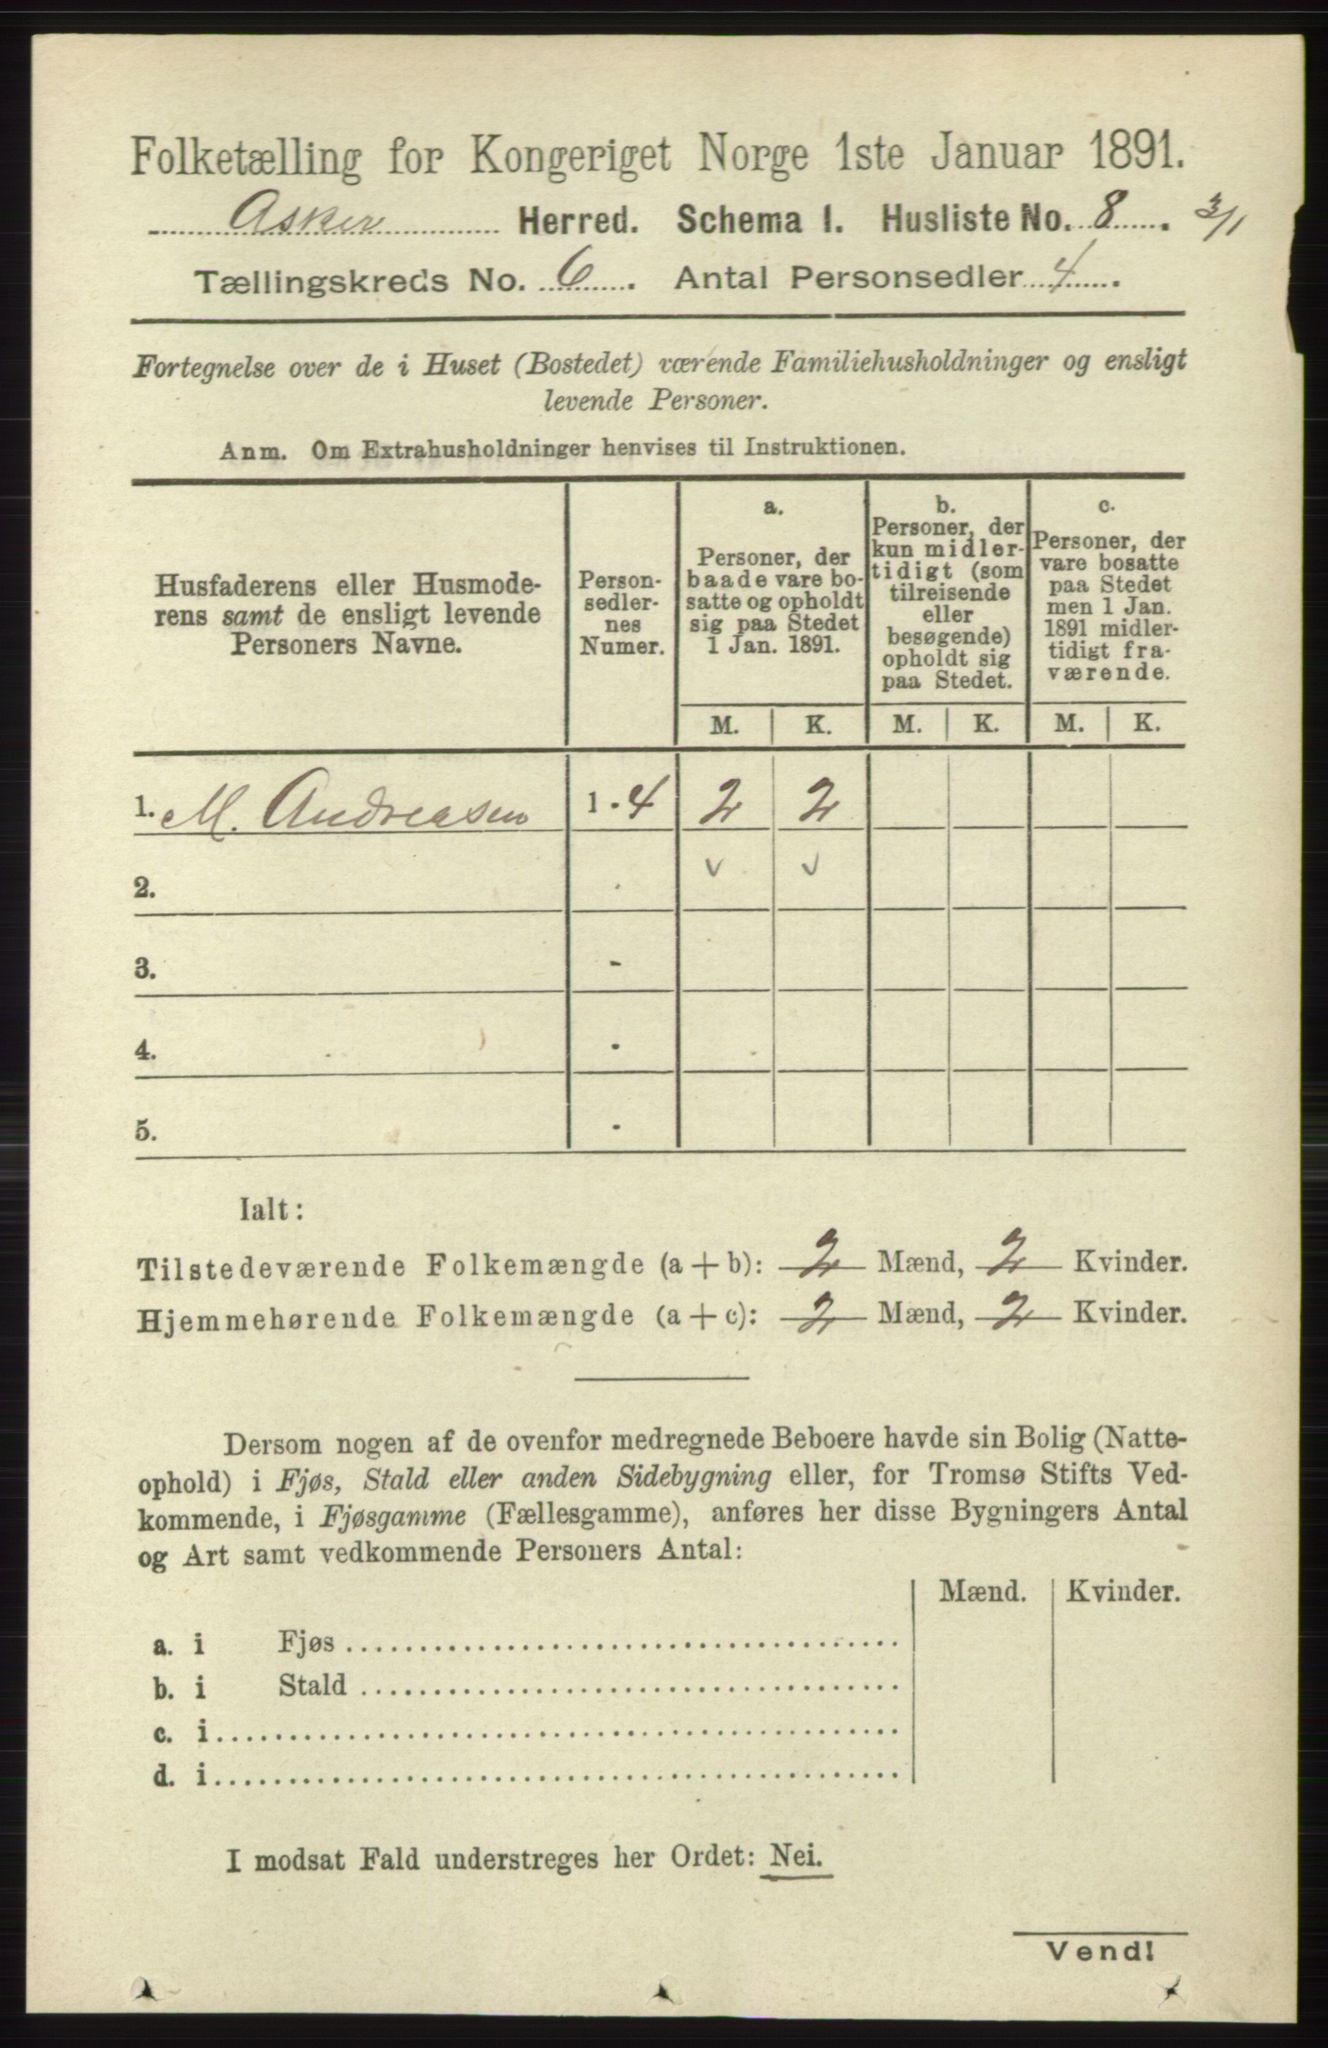 Folketælling for Kongeriget Norge 1ste Januar 1891.
Asker Herred. Schema I. Husliste No. 8. 3/1
Tællingskreds No. 6. Antal Personsedler 4.
Fortegnelse over de i Huset (Bostedet) værende Familiehusholdninger og ensligt
levende Personer.
Anm. Om Extrahusholdninger henvises til Instruktionen.
Husfaderens eller Husmode-
rens samt de ensligt levende
Personers Navne.
Person-
sedler-
nes
Numer.
a.
Personer, der
baade vare bo-
satte og opholdt
sig paa Stedet
1 Jan. 1891.
b.
Personer, der
kun midler-
tidigt (som
tilreisende
eller
besøgende)
opholdt sig
paa Stedet.
c.
Personer, der
vare bosatte
paa Stedet
men 1 Jan.
1891 midler-
tidigt fra-
værende.
M. K. M. K. M. K.
1. M. Andreasen 1 - 4 2 2
2.
3. -
4. -
5. -
Ialt:
Tilstedeværende Folkemængde (a + b): 2 Mænd, 2 Kvinder.
Hjemmehørende Folkemængde (a + c): 2 Mænd, 2 Kvinder.
Dersom nogen af de ovenfor medregnede Beboere havde sin Bolig (Natte-
ophold) i Fjøs, Stald eller anden Sidebygning eller, for Tromsø Stifts Ved-
kommende, i Fjøsgamme (Fællesgamme), anføres her disse Bygningers Antal
og Art samt vedkommende Personers Antal:
Mænd. Kvinder.
a. i Fjøs
b. i Stald
c. i
d. i
I modsat Fald understreges her Ordet: Nei.
Vend!